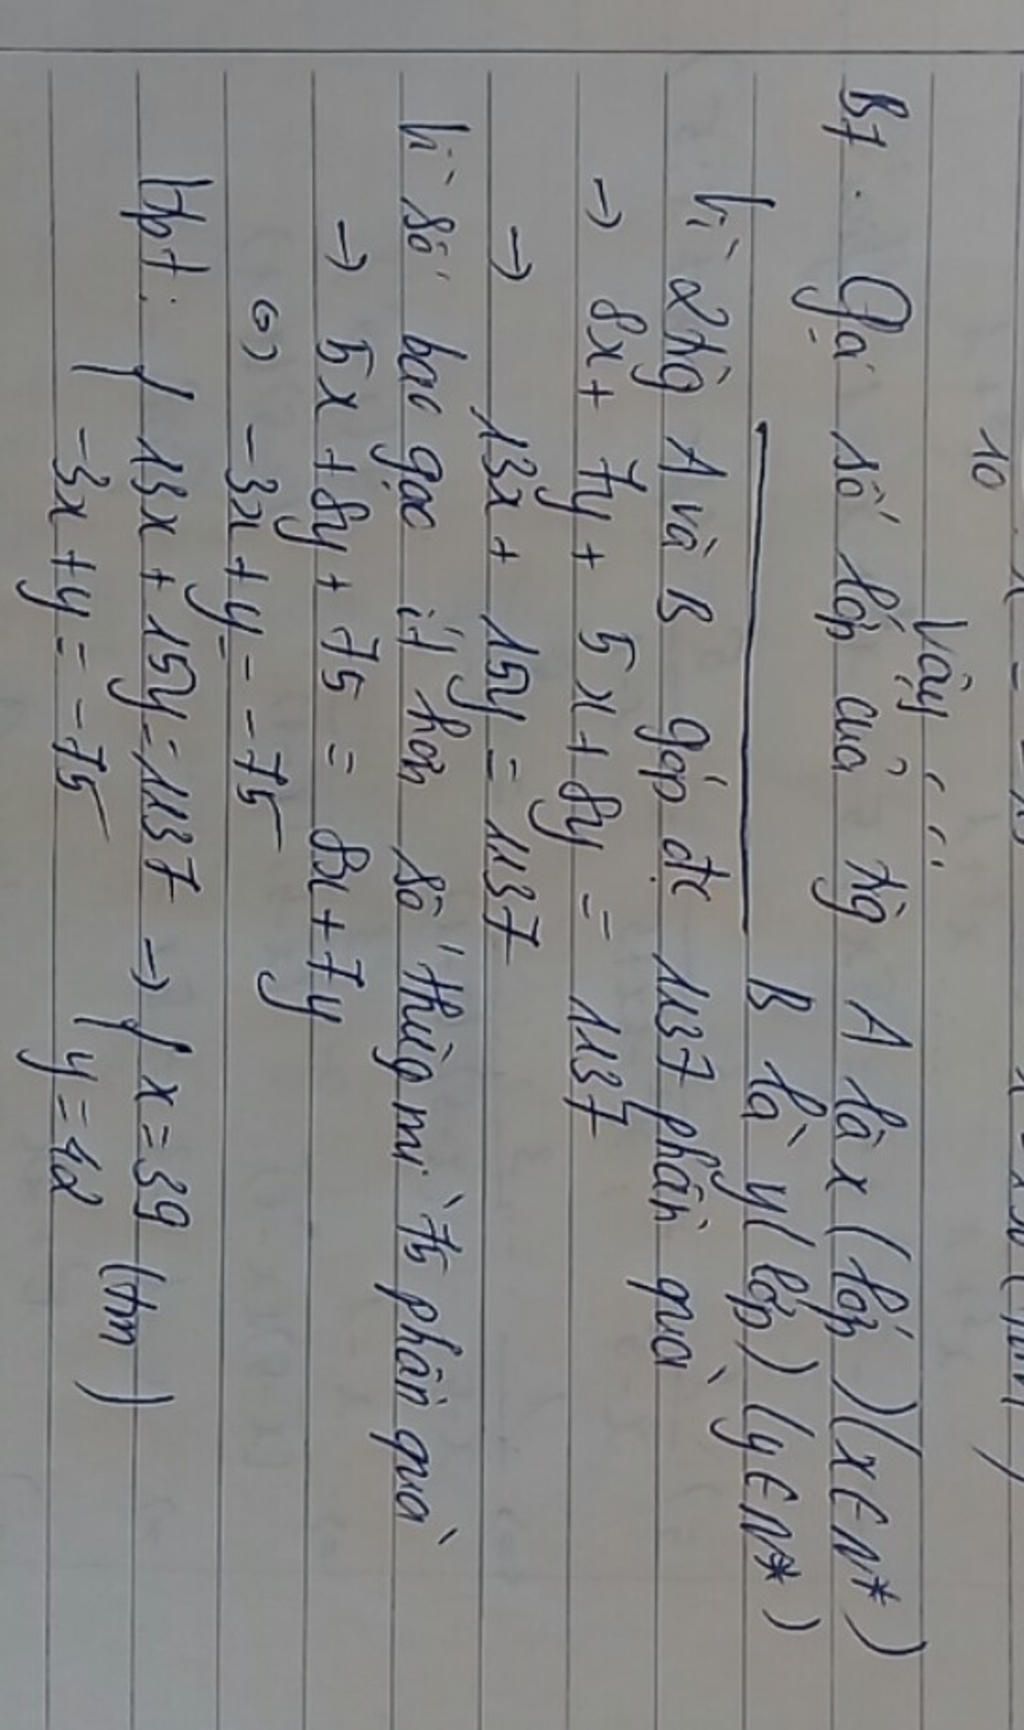 10
Vậy ...
B7. Gọi số lớp của trg A là x (lớp) (x ∈ N*)
B là y (lớp) (y ∈ N*)
Vì 2 trg A và B góp đc 1137 phần quà
→ 8x + 7y + 5x + 8y = 1137
→ 13x + 15y = 1137
Vì số bao gạo ít hơn số thùng mì 75 phần quà
→ 5x + 8y + 75 = 8x + 7y
⇔ -3x + y = -75
Hpt: { 13x + 15y = 1137 → { x = 39 (tm)
-3x + y = -75 y = 42